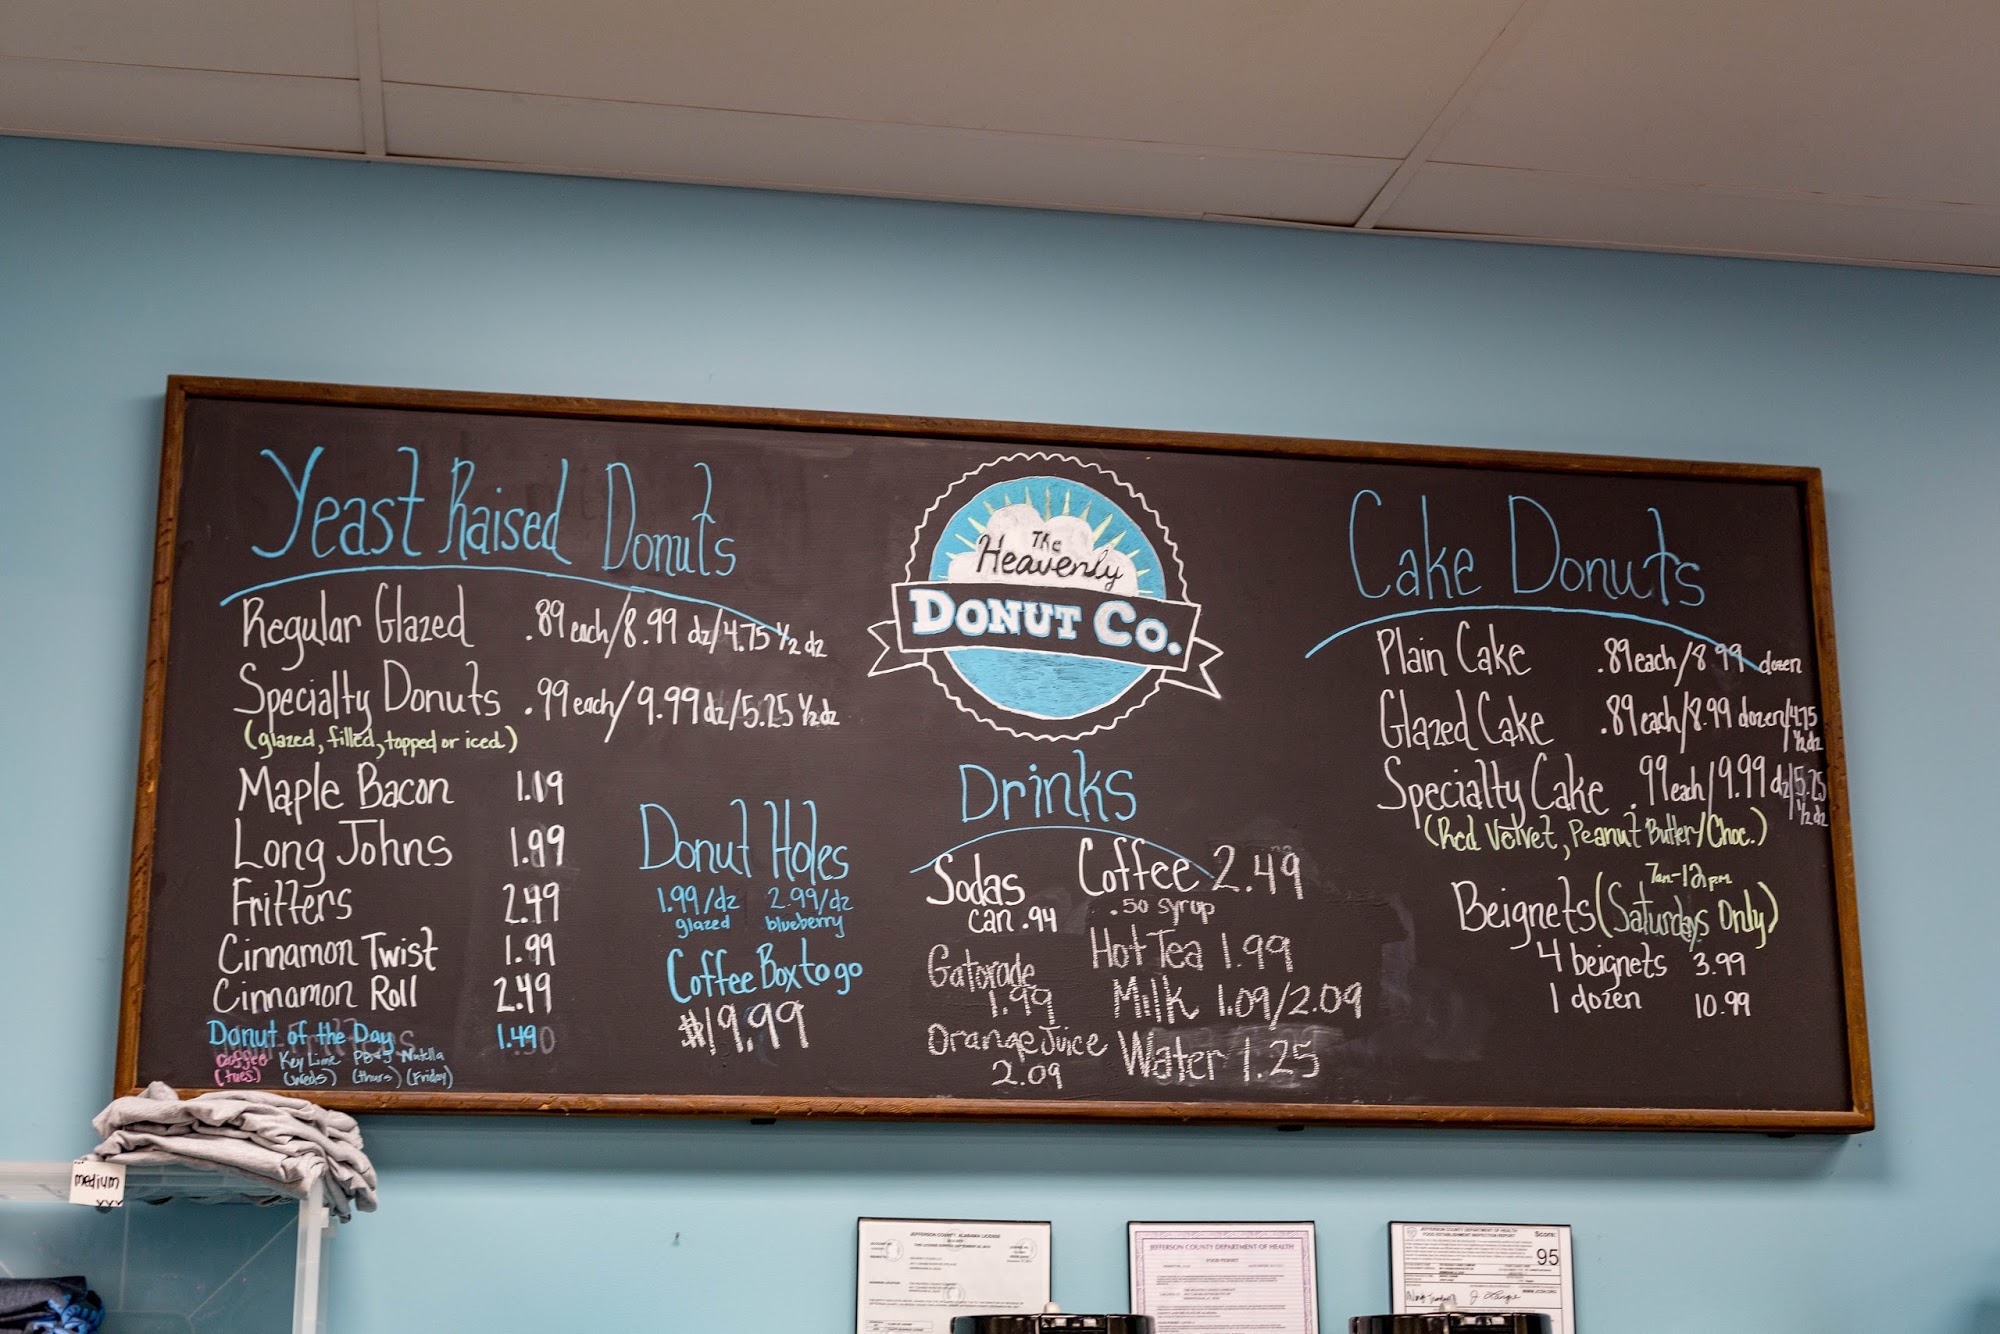 Yeast Raised Donuts
Regular Glazed .89 each/8.99 dz/4.75 1/2 dz
Specialty Donuts .99 each/9.99 dz/5.25 1/2 dz
(glazed, filled, topped or iced)
Maple Bacon
Long Johns 1.99
Fritters 2.49
Cinnamon Twist 1.99
Cinnamon Roll 2.49
Donut of the Day 1.49
Coffee Key Lime PB&J Nutella
(tues.) (weds) (thurs) (Friday)
Donut Holes
1.99/dz 2.99/dz
glazed blueberry
Coffee Box to go
$19.99
The
Heavenly
DONUT CO.
Drinks
Sodas
can .94
Gatorade
1.99
Orange Juice
2.09
Coffee 2.49
.50 syrup
Hot Tea 1.99
Milk 1.09/2.09
Water 1.25
Cake Donuts
Plain Cake .89 each/8.99 dozen
Glazed Cake .89 each/8.99 dozen/4.75
1/2 dz
Specialty Cake .99 each/9.99 dz/5.25
1/2 dz
(Red Velvet, Peanut Butter/Choc.)
7am-12pm
Beignets (Saturdays Only)
4 beignets 3.99
1 dozen 10.99
medium
xxx
JEFFERSON COUNTY, ALABAMA LICENSE
JEFFERSON COUNTY DEPARTMENT OF HEALTH
FOOD PERMIT
JEFFERSON COUNTY DEPARTMENT OF HEALTH
FOOD ESTABLISHMENT INSPECTION REPORT
Score:
95